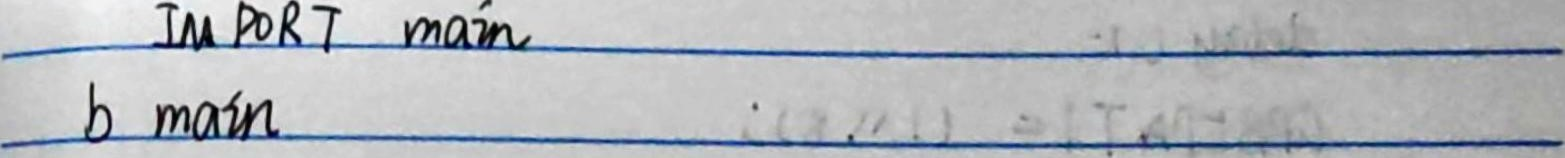 IMPORT main
b main